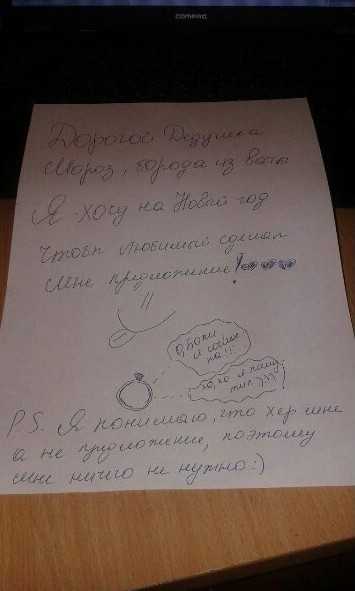 compaq
Дорогой Дедушка
Мороз, борода из ваты
Я хочу на Новый год
чтобы любимый сделал
мне предложение!
О, Боги
я согласна!!!
P.S. Я понимаю, что хер мне
а не предложение, поэтому
мне ничего не нужно:)